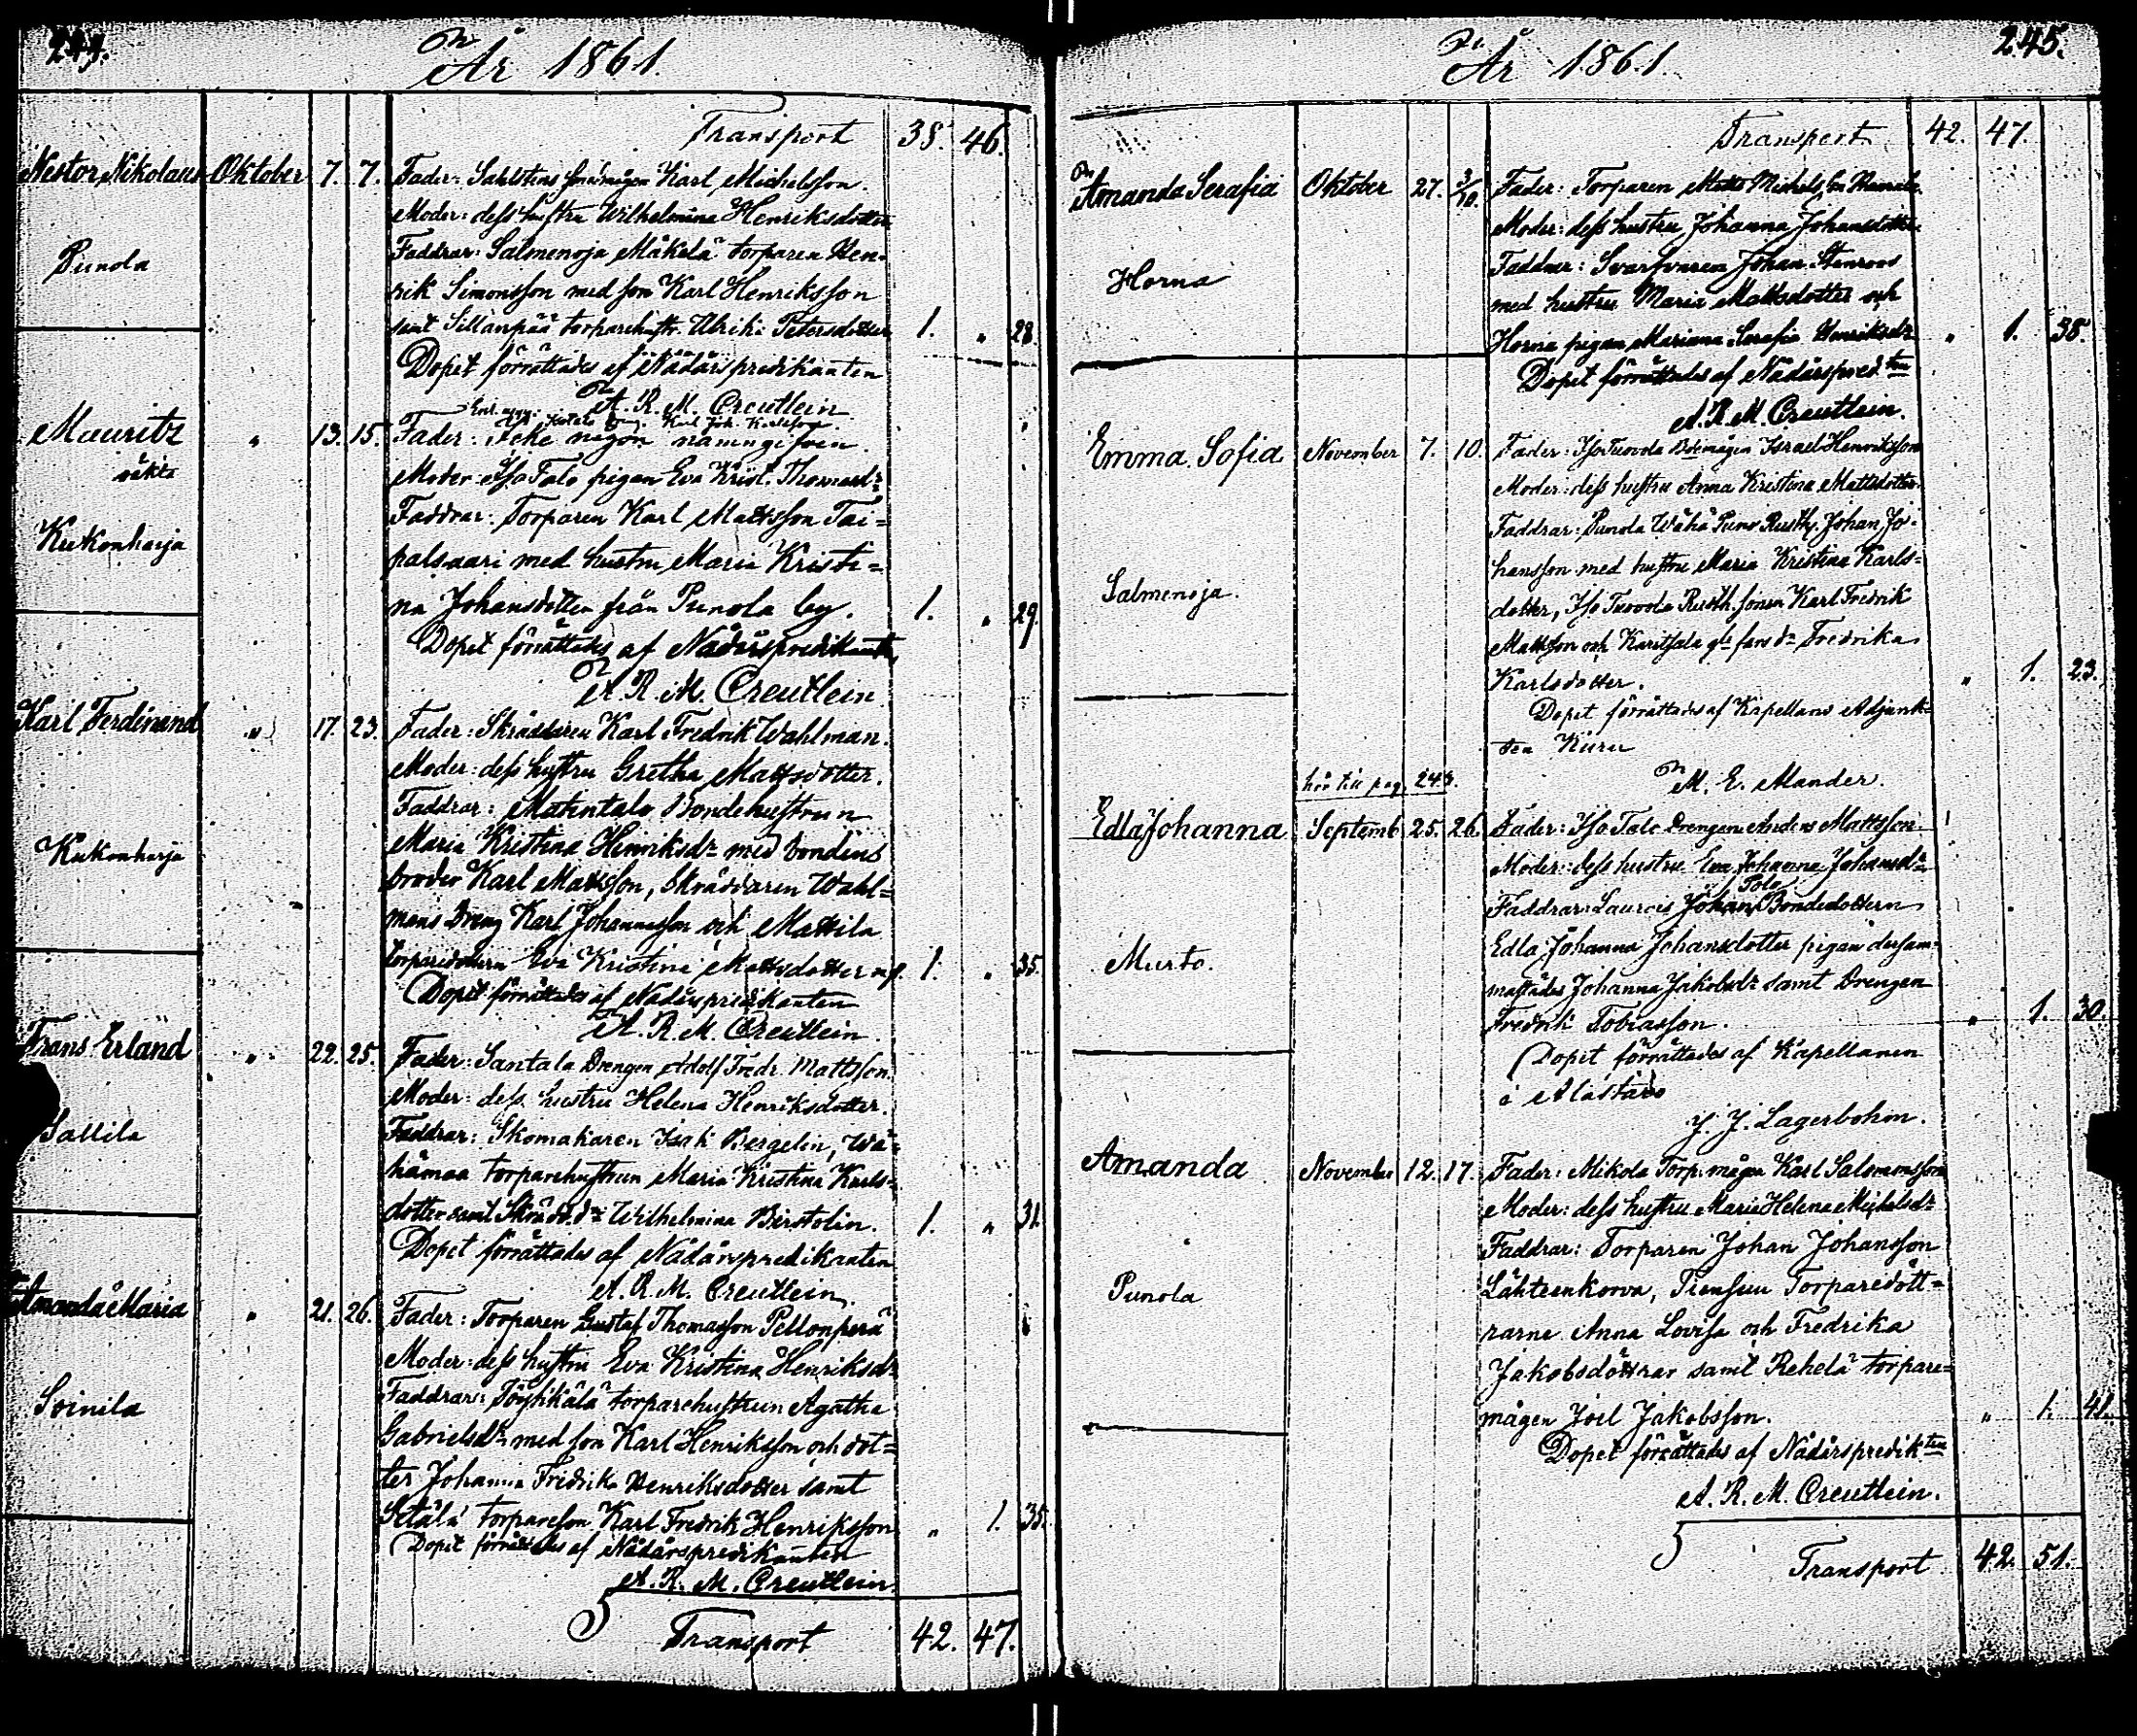 244.
År 1861.
Transport 38. 46.
Nestor Nikolaus Oktober 7. 7. Fader: Sahlstens Karl Michelsson.
Moder: dess hustru Wilhelmina Henriksdotter
Punola
Faddrar: Salmenoja Mäkelä torparen Hen-
rik Simonsson med son Karl Henriksson
samt Sillanpää torparehustr. Ulrika Petersdotter 1. " 28.
Dopet förrättades af Nådårspredikanten
A. R. M. Creutlein
Karl Joh. Karlsson
Mauritz " 13. 15. Fader: Icke någon namngifven.
oäkta
Moder: Iso Talo pigan Eva Krist. Thomasdr
Kukonharja
Faddrar: Torparen Karl Mattsson Tai=
palsaari med hustru Maria Kristi=
na Johansdotter från Punola by. 1. " 29.
Dopet förrättades af Nådårspredikanten
A. R. M. Creutlein
Karl Ferdinand " 17. 23. Fader: Skräddaren Karl Fredrik Wahlman.
Moder: dess hustru Gretha Mattsdotter.
Faddrar: Bondehustrun
Kukonharja
Maria Kristina Henriksdr med bondens
broder Karl Mattsson, Skräddaren Wahl=
mans Dreng Karl Johansson och Mattila
torparedottern Eva Kristina Mattsdotter 1. " 35.
Dopet förrättades af Nådårspredikanten
A. R. M. Creutlein.
Frans Erland " 22. 25. Fader: Santala Drengen Adolf Fredr. Mattsson.
Moder: dess hustru Helena Henriksdotter.
Sallila
Faddrar: Skomakaren Isak Bergelin, Wä=
hämaa torparehustrun Maria Kristina Karls=
dotter samt Skrädd. dr Wilhelmina Birstolin. 1. " 31.
Dopet förrättades af Nådårspredikanten
A. R. M. Creutlein.
Amanda Maria " 21. 26. Fader: Torparen Gustaf Thomasson Pellonperä
Moder: dess hustru Eva Kristina Henriksdr
Soinila
Faddrar: torparehustrun Agatha
Gabrielsdr med son Karl Henriksson och dot=
ter Johanna Fredrika Henriksdotter samt
Setälä torpareson Karl Fredrik Henriksson " 1. 35.
Dopet förrättades af Nådårspredikanten
A. R. M. Creutlein.
Transport 42. 47.
245.
År 1861.
Transport 42. 47.
Amanda Serafia Oktober 27. 3/10. Fader: Torparen Matts Michelsson
Moder: dess hustru Johanna Johansdotter
Horna
Faddrar: Svarfvaren Johan Stenroos
med hustru Maria Mattsdotter och
Horna pigan Mariana Serafia Henriksdr " 1. 38.
Dopet förrättades af Nådårspred.ten
A. R. M. Creutlein.
Emma Sofia November 7. 10. Fader: Iso Tuovola Bdemågen Israel Henriksson
Moder: dess hustru Anna Kristina Mattsdotter.
Faddrar: Punola Wähä Rusth. Johan Jo-
hansson med hustru Maria Kristina Karls=
Salmenoja.
dotter, Iso Tuovola Rusth. sonen Karl Fredrik
Mattsson och Karitsala dr Fredrika
Karlsdotter. " 1. 23.
Dopet förrättades af Kapellans Adjunk=
ten Kiuru
M. E. Mander.
hör till pag. 243.
Edla Johanna Septemb. 25. 26. Fader: Iso Talo Drengen Anders Mattsson.
Moder: dess hustru Eva Johanna Johansdr
Faddrar: Laurois Johan Polo Bondedottern
Murto.
Edla Johanna Johansdotter pigan dersam=
mastädes Johanna Jakobsdr samt Drengen
Fredrik Tobiasson. " 1. 30.
Dopet förrättades af Kapellanen
i Alastaro
J. J. Lagerbohm.
Amanda November 12. 17. Fader: Mikola Torp. mågen Karl Salomonsson
Moder: dess hustru Maria Helena Michelsdr
Faddrar: Torparen Johan Johansson
Punola
Lähteenkorva, Tiensuu Torparedött=
rarne Anna Lovisa och Fredrika
Jakobsdöttrar samt Rehelä torpare=
mågen Joel Jakobsson. " 1. 41.
Dopet förrättades af Nådårspredikten
A. R. M. Creutlein.
Transport 42. 51.